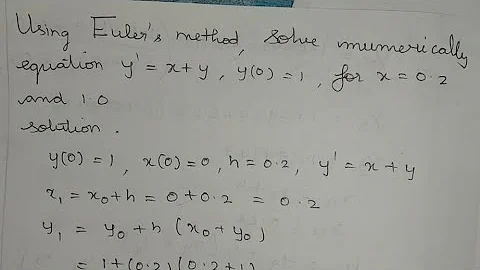 Using Euler's method, solve numerically
equation y' = x+y, y(0) = 1, for x = 0.2
and 1.0
solution.
y(0) = 1, x(0) = 0, h = 0.2, y' = x+y
x₁ = x₀+h = 0+0.2 = 0.2
y₁ = y₀+h (x₀+y₀)
= 1+(0.2)(0.2+1)